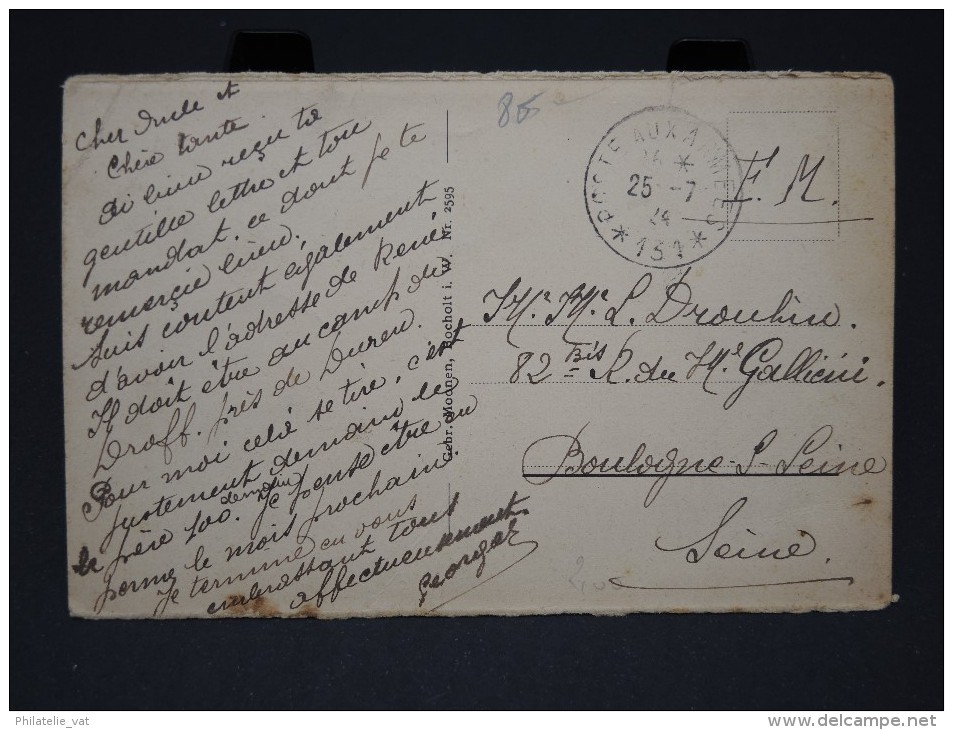 Cher Oncle et
Chère tante
Ai bien reçu ta
gentille lettre et ton
mandat. ce dont je te
remerçie bien.
Suis content également
d'avoir l'adresse de René.
Il doit être au camp du
Droff. près de Duren.
Pour moi celà se tire, c'est
justement demain le
le père 100. demain je pense être en
perme le mois prochain.
Je termine en vous
embrassant tous
affectueusement.
Georges
Gebr. Moonen, Bocholt i. W. Nr. 2595
86
POSTE AUX ARMEES
14 *
25 -7
24
* 131 *
F. M.
Mr. Me. L. Droulin.
82 Bis R. du Ml Galliéni.
Boulogne-S-Seine
Seine.
2,00
Philatelie_vat
www.delcampe.net